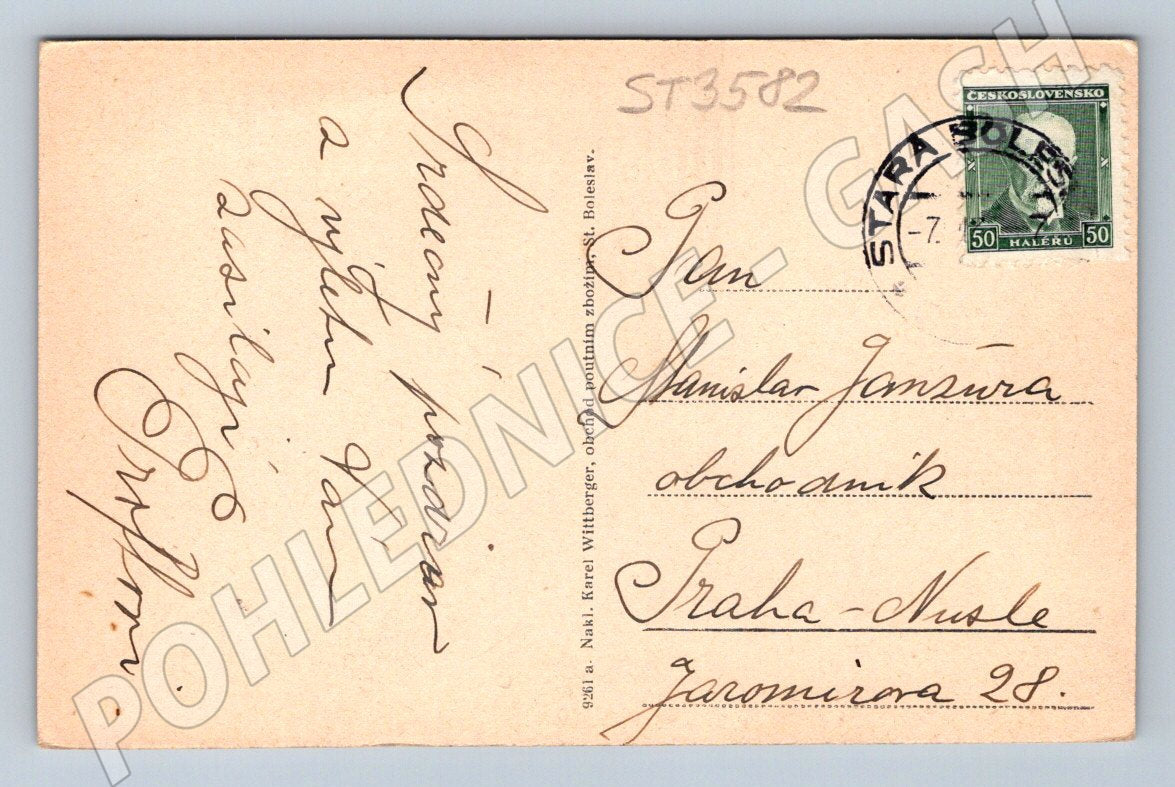 ST3582
ČESKOSLOVENSKO
50 HALÉŘŮ 50
STARÁ BOLES
-7.
Pan
Stanislav Jansůra
obchodník
Praha-Nusle
Jaromírova 28.
9261 a. Nakl. Karel Wittberger, obchod poutním zbožím, St. Boleslav.
Srdečný pozdrav
a výletu Vám
zasílají
POHLEDNICE - GASH